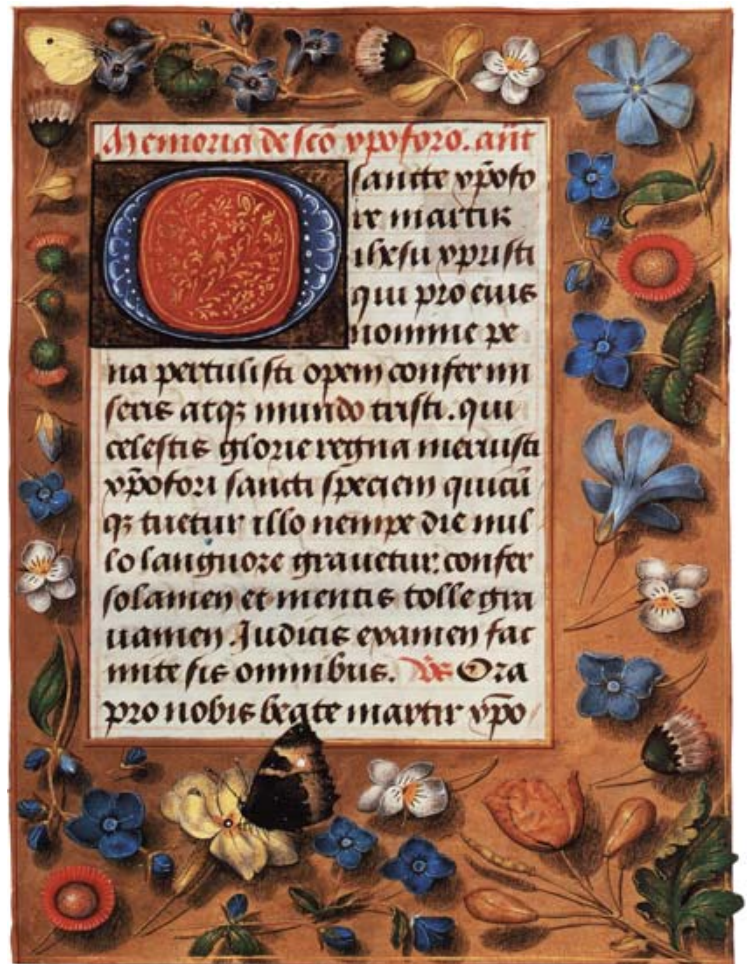 Memoria de sco̅ xp̅oforo. an̅t
O sancte xp̅ofo
re martir
ihesu xpristi
qui pro eius
nomine pe
na pertulisti opem confer mi
seris atqꝫ mundo tristi. qui
celestis glorie regna meruisti
xp̅ofori sancti speciem quicu̅
qꝫ tuetur illo nempe die nul
lo languore grauetur: confer
solamen et mentis tolle gra
uamen. Iudicis examen fac
mite sis omnibus. V̅s Ora
pro nobis beate martir xp̅o